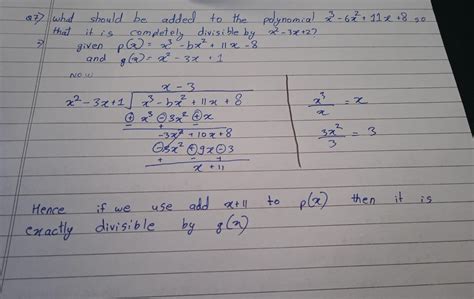 Q7) what should be added to the polynomial x³-6x²+11x+8 so
that it is completely divisible by x²-3x+2?
=> given p(x) = x³-6x²+11x-8
and g(x) = x²-3x+1
Now
x-3
x²-3x+1 √ x³-6x²+11x+8
⊕x³ ⊖3x² ⊕x
- + -
-3x²+10x+8
⊖3x² ⊕9x ⊖3
+ - +
x+11
x³/x = x
3x²/3 = 3
Hence if we use add x+11 to p(x) then it is
exactly divisible by g(x)